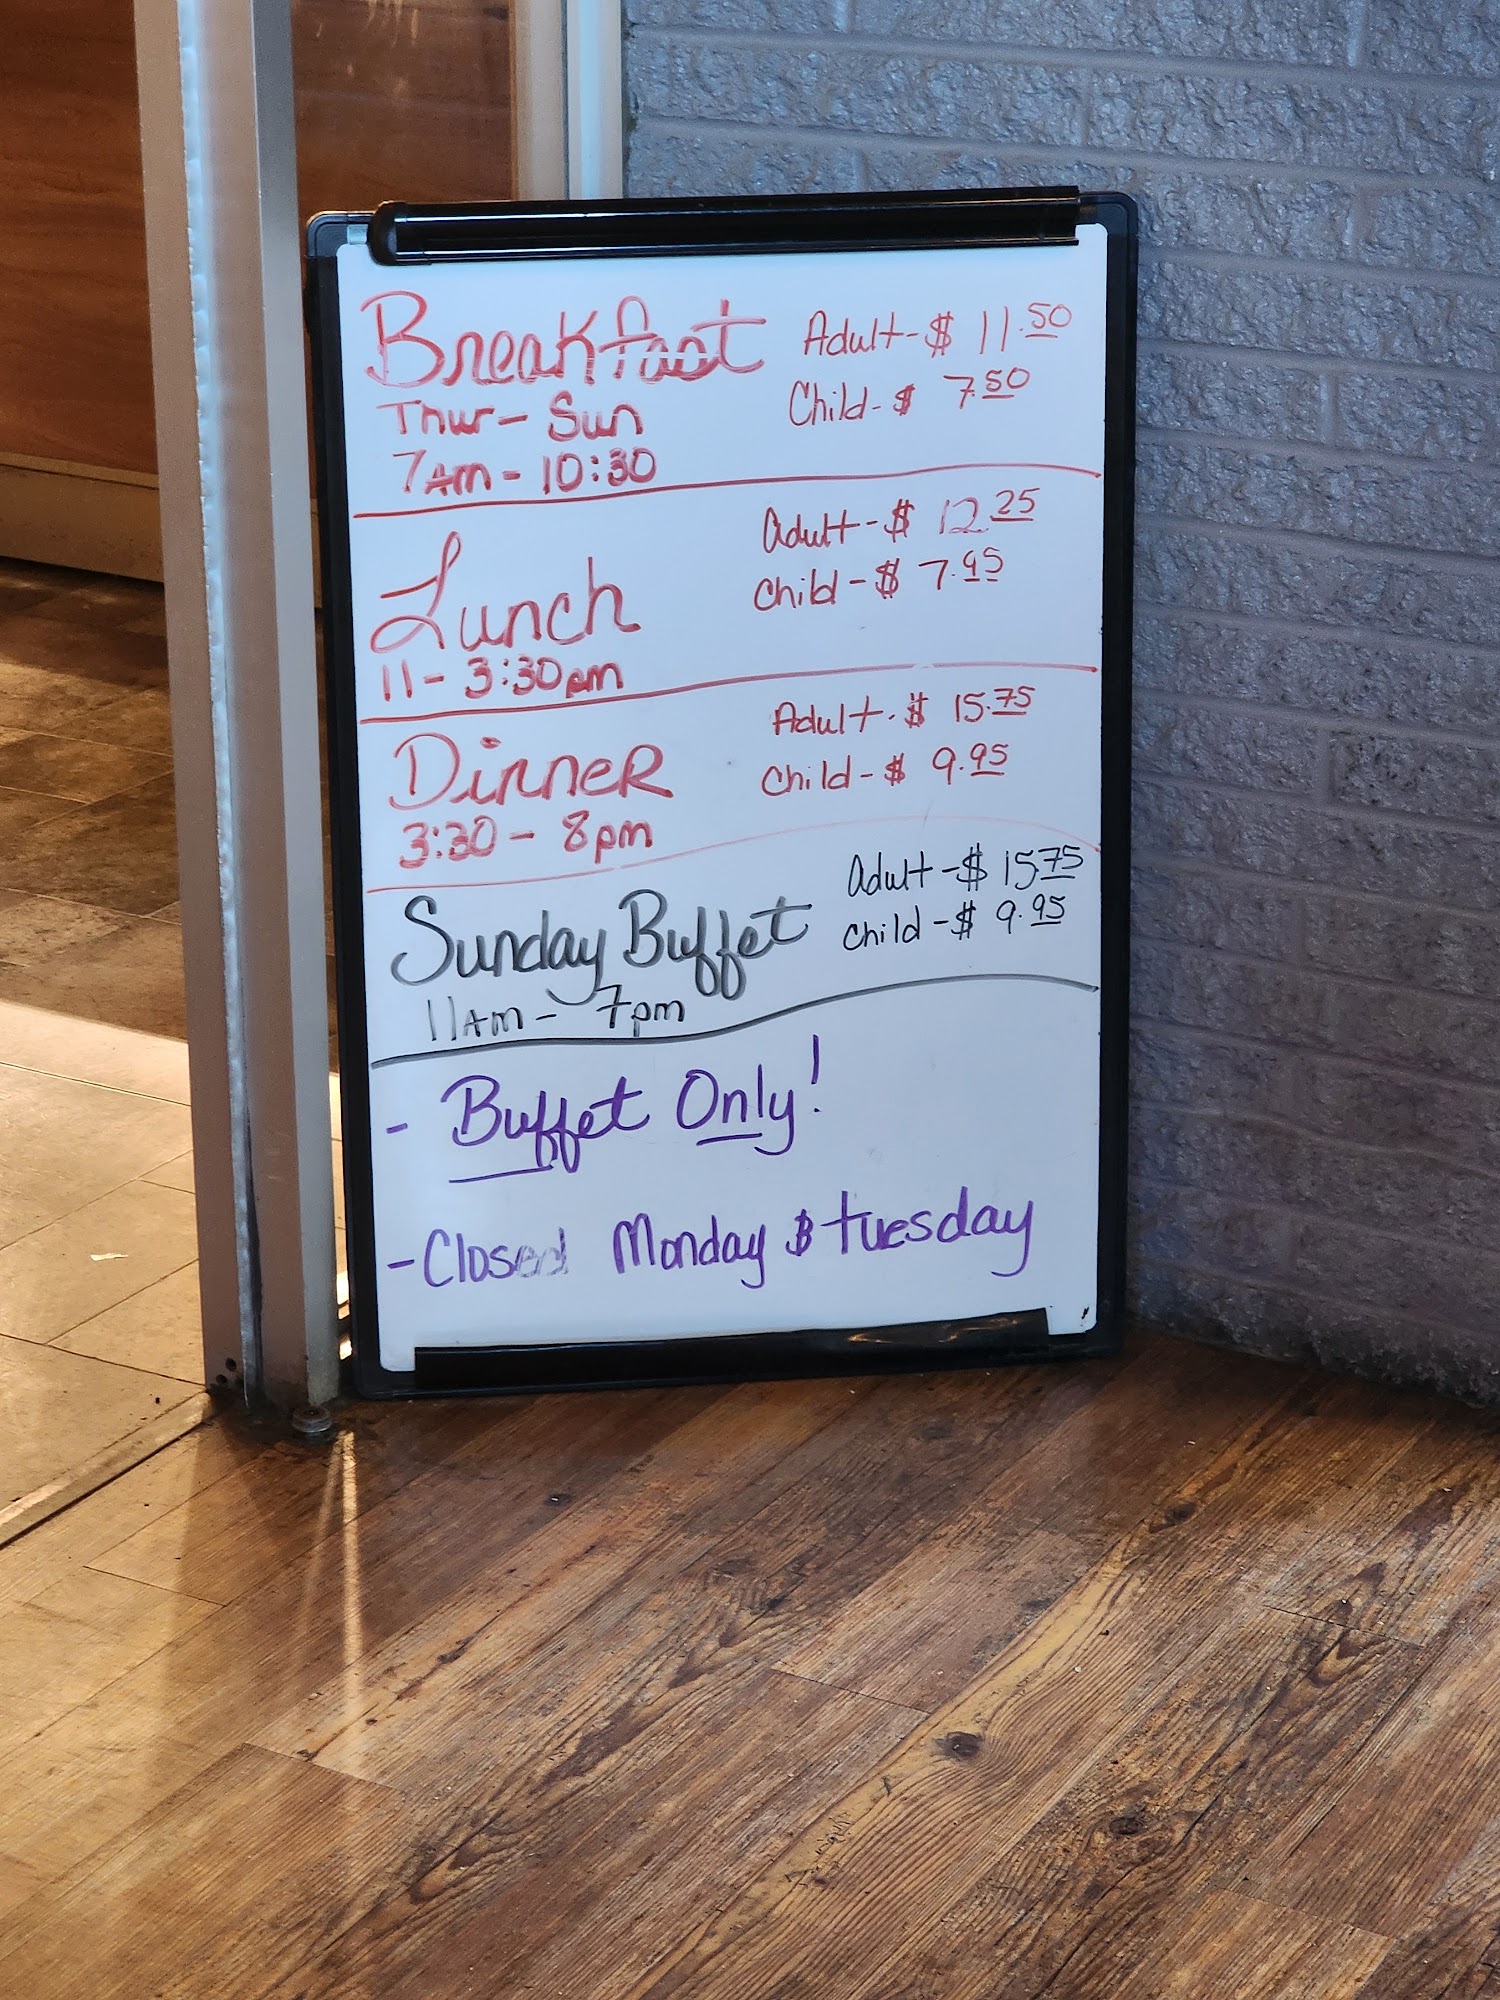 Breakfast Adult-$ 11.50
Thur-Sun Child-$ 7.50
7Am-10:30
Lunch Adult-$ 12.25
11-3:30pm Child-$ 7.95
Dinner Adult-$ 15.75
3:30-8pm Child-$ 9.95
Sunday Buffet Adult-$ 15.75
11Am-7pm Child-$ 9.95
- Buffet Only!
- Closed Monday & tuesday